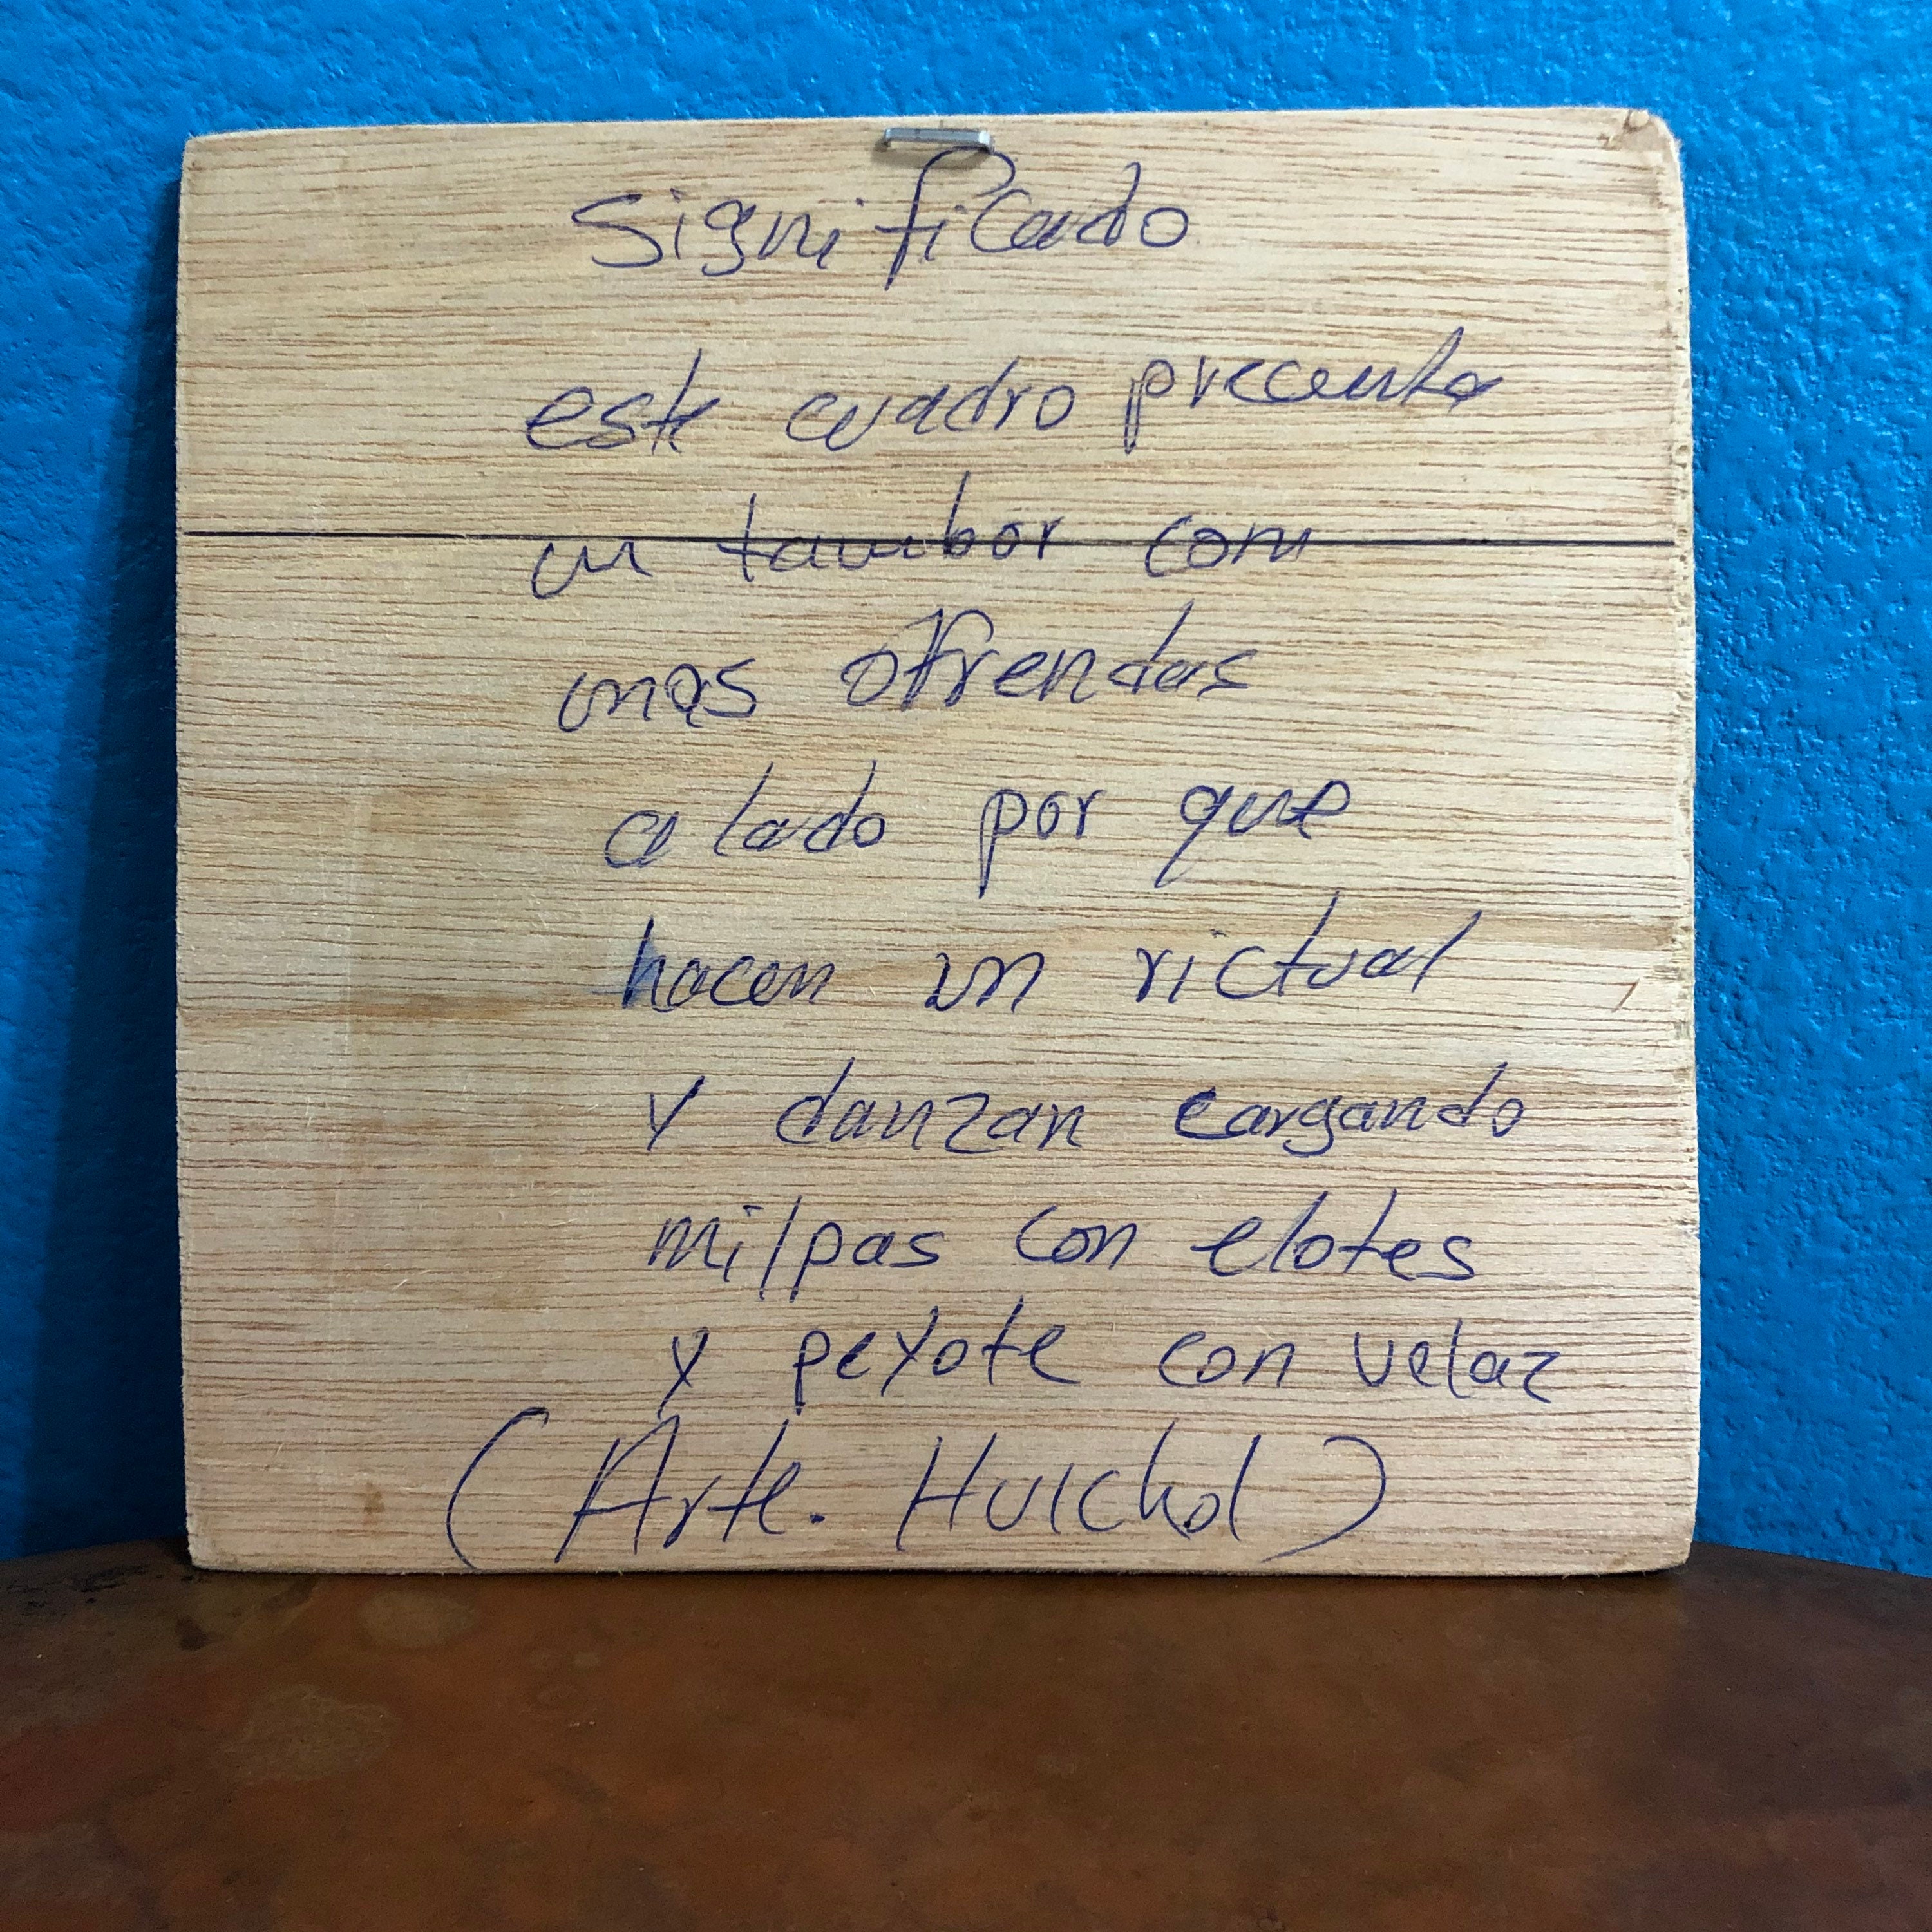 significado
este cuadro precenta
un tambor con
unas ofrendas
a lado por que
hacen un rictual
y danzan cargando
milpas con elotes
y peyote con velaz
(Arte. Huichol)